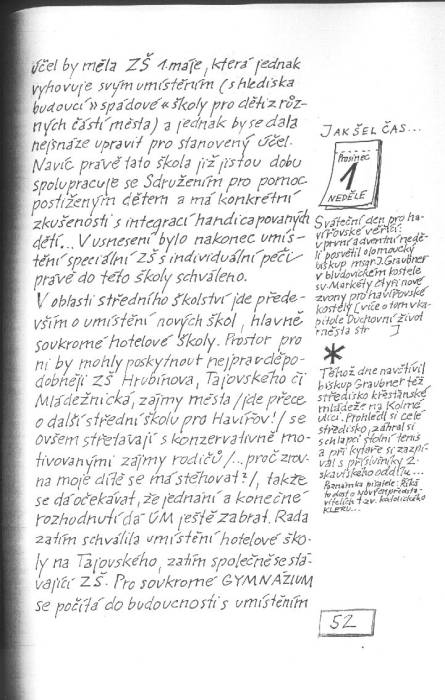 účel by měla ZŠ 1. máje, která jednak
vyhovuje svým umístěním (s hlediska
budoucí »spádové« školy pro děti z růz-
ných částí města) a jednak by se dala
nejsnáze upravit pro stanovený účel.
Navíc právě tato škola již jistou dobu
spolupracuje se Sdružením pro pomoc
postiženým dětem a má konkrétní
zkušenosti s integrací handicapovaných
dětí... V usnesení bylo nakonec umís-
tění speciální ZŠ s individuální péčí
právě do této školy schváleno.
V oblasti středního školství jde přede-
vším o umístění nových škol, hlavně
soukromé hotelové školy. Prostor pro
ni by mohly poskytnout nejpravděpo-
dobněji ZŠ Hrubínova, Tajovského či
Mládežnická, zájmy města /jde přece
o další střední školu pro Havířov!/ se
ovšem střetávají s konzervativně mo-
tivovanými zájmy rodičů /...proč zrov-
na moje dítě se má stěhovat?/, takže
se dá očekávat, že jednání a konečné
rozhodnutí dá ÚM ještě zabrat. Rada
zatím schválila umístění hotelové ško-
ly na Tajovského, zatím společně se stá-
vající ZŠ. Pro soukromé GYMNÁZIUM
se počítá do budoucnosti s umístěním
JAK ŠEL ČAS...
Prosinec
1
NEDĚLE
Sváteční den pro ha-
vířovské věřící:
v první adventní nedě-
li posvětil olomoucký
biskup msgr. J. Graubner
v bludovickém kostele
sv. Markéty čtyři nové
zvony pro havířovské
kostely [více o tom v ka-
pitole Duchovní život
města str ]
*
Téhož dne navštívil
biskup Graubner též
středisko křesťanské
mládeže na Kolmé
ulici. Prohlédl si celé
středisko, zahrál si
s chlapci stolní tenis
a při kytaře si zazpí-
val s příslušníky 2.
skautského oddílu...
Poznámka pisatele: Říká
to dost o nových představi-
telích tzv. katolického
KLÉRU...
52